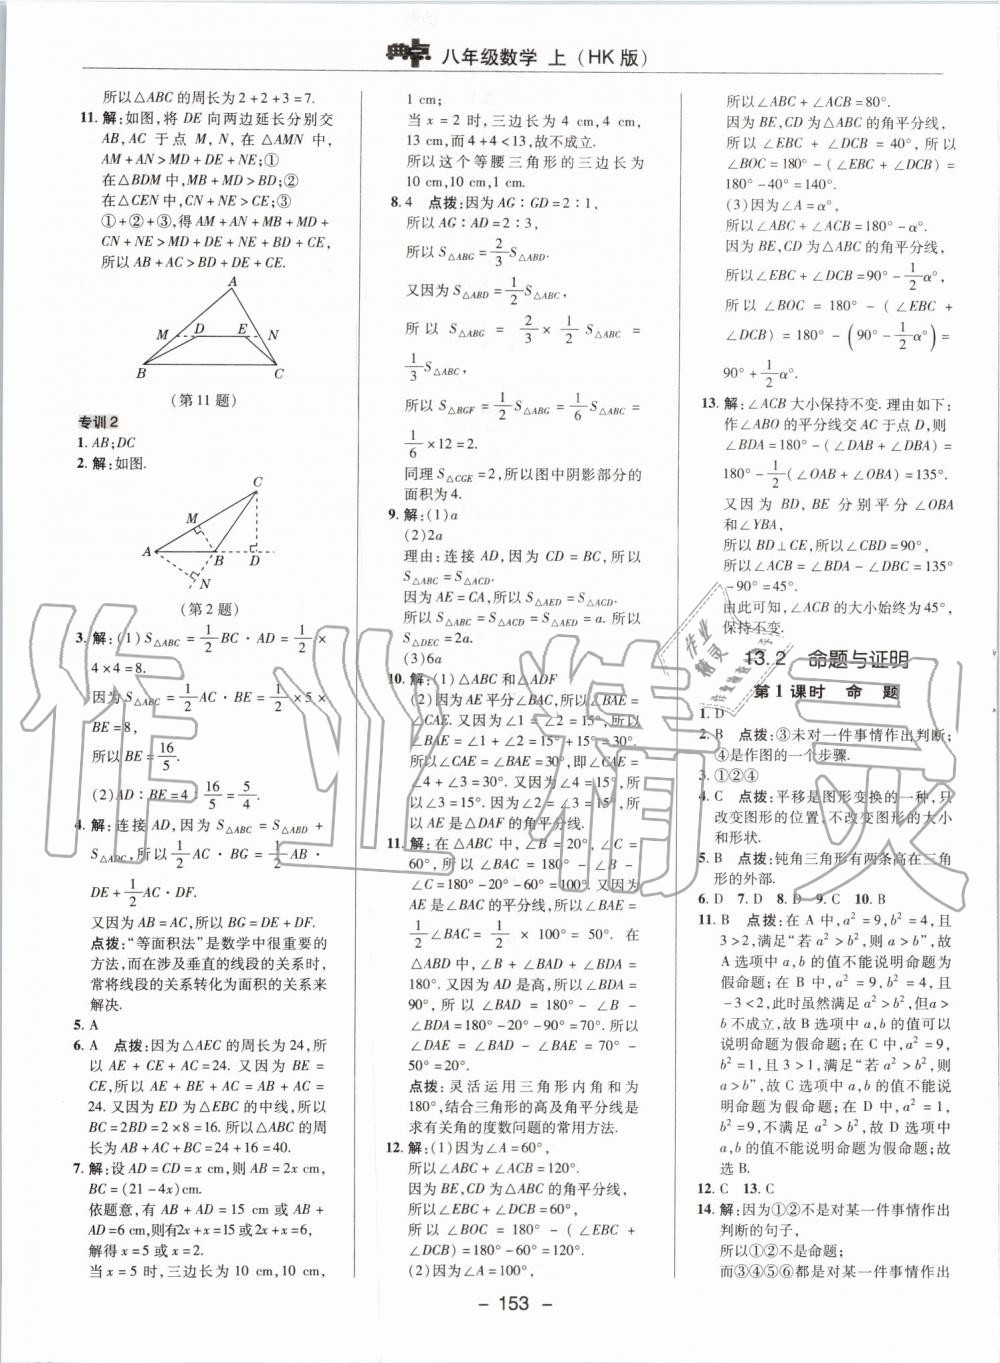 典点 八年级数学 上(HK版)
所以△ABC的周长为2+2+3=7.
11.解:如图,将DE向两边延长分别交
AB,AC于点M,N,在△AMN中,
AM+AN>MD+DE+NE;①
在△BDM中,MB+MD>BD;②
在△CEN中,CN+NE>CE;③
①+②+③,得AM+AN+MB+MD+
CN+NE>MD+DE+NE+BD+CE,
所以AB+AC>BD+DE+CE.
A
M D E N
B C
(第11题)
专训2
1.AB;DC
2.解:如图.
C
M
A B D
N
(第2题)
3.解:(1)S△ABC=1/2 BC·AD=1/2×
4×4=8.
因为S△ABC=1/2 AC·BE=1/2×5×
BE=8,
所以BE=16/5.
(2)AD:BE=4:16/5=5/4.
4.解:连接AD,因为S△ABC=S△ABD+
S△ADC,所以1/2 AC·BG=1/2 AB·
DE+1/2 AC·DF.
又因为AB=AC,所以BG=DE+DF.
点拨:“等面积法”是数学中很重要的
方法,而在涉及垂直的线段的关系时,
常将线段的关系转化为面积的关系来
解决.
5.A
6.A 点拨:因为△AEC的周长为24,所
以AE+CE+AC=24.又因为BE=
CE,所以AE+BE+AC=AB+AC=
24.又因为ED为△EBC的中线,所以
BC=2BD=2×8=16.所以△ABC的周
长为AB+AC+BC=24+16=40.
7.解:设AD=CD=x cm,则AB=2x cm,
BC=(21-4x)cm.
依题意,有AB+AD=15 cm或AB+
AD=6 cm,则有2x+x=15或2x+x=6,
解得x=5或x=2.
当x=5时,三边长为10 cm,10 cm,
1 cm;
当x=2时,三边长为4 cm,4 cm,
13 cm,而4+4<13,故不成立.
所以这个等腰三角形的三边长为
10 cm,10 cm,1 cm.
8.4 点拨:因为AG:GD=2:1,
所以AG:AD=2:3,
所以S△ABG=2/3 S△ABD.
又因为S△ABD=1/2 S△ABC,
所以S△ABG=2/3×1/2 S△ABC=
1/3 S△ABC,
所以S△BGF=1/2 S△ABG=1/6 S△ABC=
1/6×12=2.
同理S△CGE=2,所以图中阴影部分的
面积为4.
9.解:(1)a
(2)2a
理由:连接AD,因为CD=BC,所以
S△ABC=S△ACD.
因为AE=CA,所以S△AED=S△ACD.
所以S△ABC=S△ACD=S△AED=a.所以
S△DEC=2a.
(3)6a
10.解:(1)△ABC和△ADF
(2)因为AE平分∠BAC,所以∠BAE=
∠CAE.又因为∠1=∠2=15°,所以
∠BAE=∠1+∠2=15°+15°=30°.
所以∠CAE=∠BAE=30°,即∠CAE=
∠4+∠3=30°.又因为∠4=15°,所
以∠3=15°,所以∠2=∠3=15°,所
以AE是△DAF的角平分线.
11.解:在△ABC中,∠B=20°,∠C=
60°,所以∠BAC=180°-∠B-
∠C=180°-20°-60°=100°.又因为
AE是∠BAC的平分线,所以∠BAE=
1/2∠BAC=1/2×100°=50°.在
△ABD中,∠B+∠BAD+∠BDA=
180°.又因为AD是高,所以∠BDA=
90°,所以∠BAD=180°-∠B-
∠BDA=180°-20°-90°=70°.所以
∠DAE=∠BAD-∠BAE=70°-
50°=20°.
点拨:灵活运用三角形内角和为
180°,结合三角形的高及角平分线是
求有关角的度数问题的常用方法.
12.解:(1)因为∠A=60°,
所以∠ABC+∠ACB=120°.
因为BE,CD为△ABC的角平分线,
所以∠EBC+∠DCB=60°,
所以∠BOC=180°-(∠EBC+
∠DCB)=180°-60°=120°.
(2)因为∠A=100°,
所以∠ABC+∠ACB=80°.
因为BE,CD为△ABC的角平分线,
所以∠EBC+∠DCB=40°,所以
∠BOC=180°-(∠EBC+∠DCB)=
180°-40°=140°.
(3)因为∠A=α°,
所以∠ABC+∠ACB=180°-α°.
因为BE,CD为△ABC的角平分线,
所以∠EBC+∠DCB=90°-1/2α°,
所以∠BOC=180°-(∠EBC+
∠DCB)=180°-(90°-1/2α°)=
90°+1/2α°.
13.解:∠ACB大小保持不变.理由如下:
作∠ABO的平分线交AC于点D,则
∠BDA=180°-(∠DAB+∠DBA)=
180°-1/2(∠OAB+∠OBA)=135°.
又因为BD,BE分别平分∠OBA
和∠YBA,
所以BD⊥CE,所以∠CBD=90°,
所以∠ACB=∠BDA-∠DBC=135°
-90°=45°.
由此可知,∠ACB的大小始终为45°,
保持不变.
13.2 命题与证明
第1课时 命题
1.D
2.B 点拨:③未对一件事情作出判断;
④是作图的一个步骤.
3.①②④
4.C 点拨:平移是图形变换的一种,只
改变图形的位置,不改变图形的大小
和形状.
5.B 点拨:钝角三角形有两条高在三角
形的外部.
6.D 7.D 8.D 9.C 10.B
11.B 点拨:在A中,a²=9,b²=4,且
3>2,满足“若a²>b²,则a>b”,故
A选项中a,b的值不能说明命题为
假命题;在B中,a²=9,b²=4,且
-3<2,此时虽然满足a²>b²,但a>
b不成立,故B选项中a,b的值可以
说明命题为假命题;在C中,a²=9,
b²=1,且3>1,满足“若a²>b²,则
a>b”,故C选项中a,b的值不能说
明命题为假命题;在D中,a²=1,
b²=9,不满足a²>b²,故D选项中
a,b的值不能说明命题为假命题.故
选B.
12.C 13.C
14.解:因为①②不是对某一件事情作出
判断的句子,
所以①②不是命题;
而③④⑤⑥都是对某一件事情作出
- 153 -
作业精灵
作业
精灵